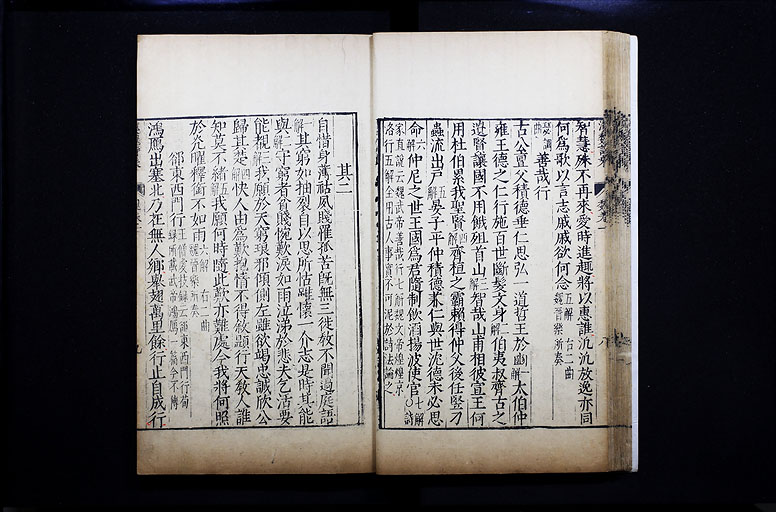 智慧殊不再來愛時進趣將以惠誰汎汎放逸亦同
何爲歌以言志戚戚欲何念五解 右二曲魏晉樂所奏
善哉行
古公亶父積德垂仁思弘一道哲王於豳一解太伯仲
雍王德之仁行施百世斷髮文身二解伯夷叔齊古之
遺賢讓國不用餓殂首山三解智哉山甫相彼宣王何
用杜伯累我聖賢四解齊桓之霸賴得仲父後任豎刁
蟲流出戶五解晏子平仲積德兼仁與世沈德未必思
命六解仲尼之世王國爲君隨制飲酒揚波使官七解
其二
自惜身薄祜夙賤罹孤苦旣無三徙敎不聞過庭語
一解其窮如抽裂自以思所怙雖懷一介志是時其能
與二解守窮者貧賤惋歎淚如雨泣涕於悲夫乞活要
能覩三解我願於天窮琅邪傾側左雖欲竭忠誠欣公
歸其楚四解快人由爲歎抱情不得敘顯行天敎人誰
知莫不緒五解我願何時隨此歎亦難處今我將何照
於光曜釋銜不如雨六解 右二曲魏晉樂所奏
郤東西門行
鴻鴈出塞北乃在無人鄉舉翅萬里餘行止自成行